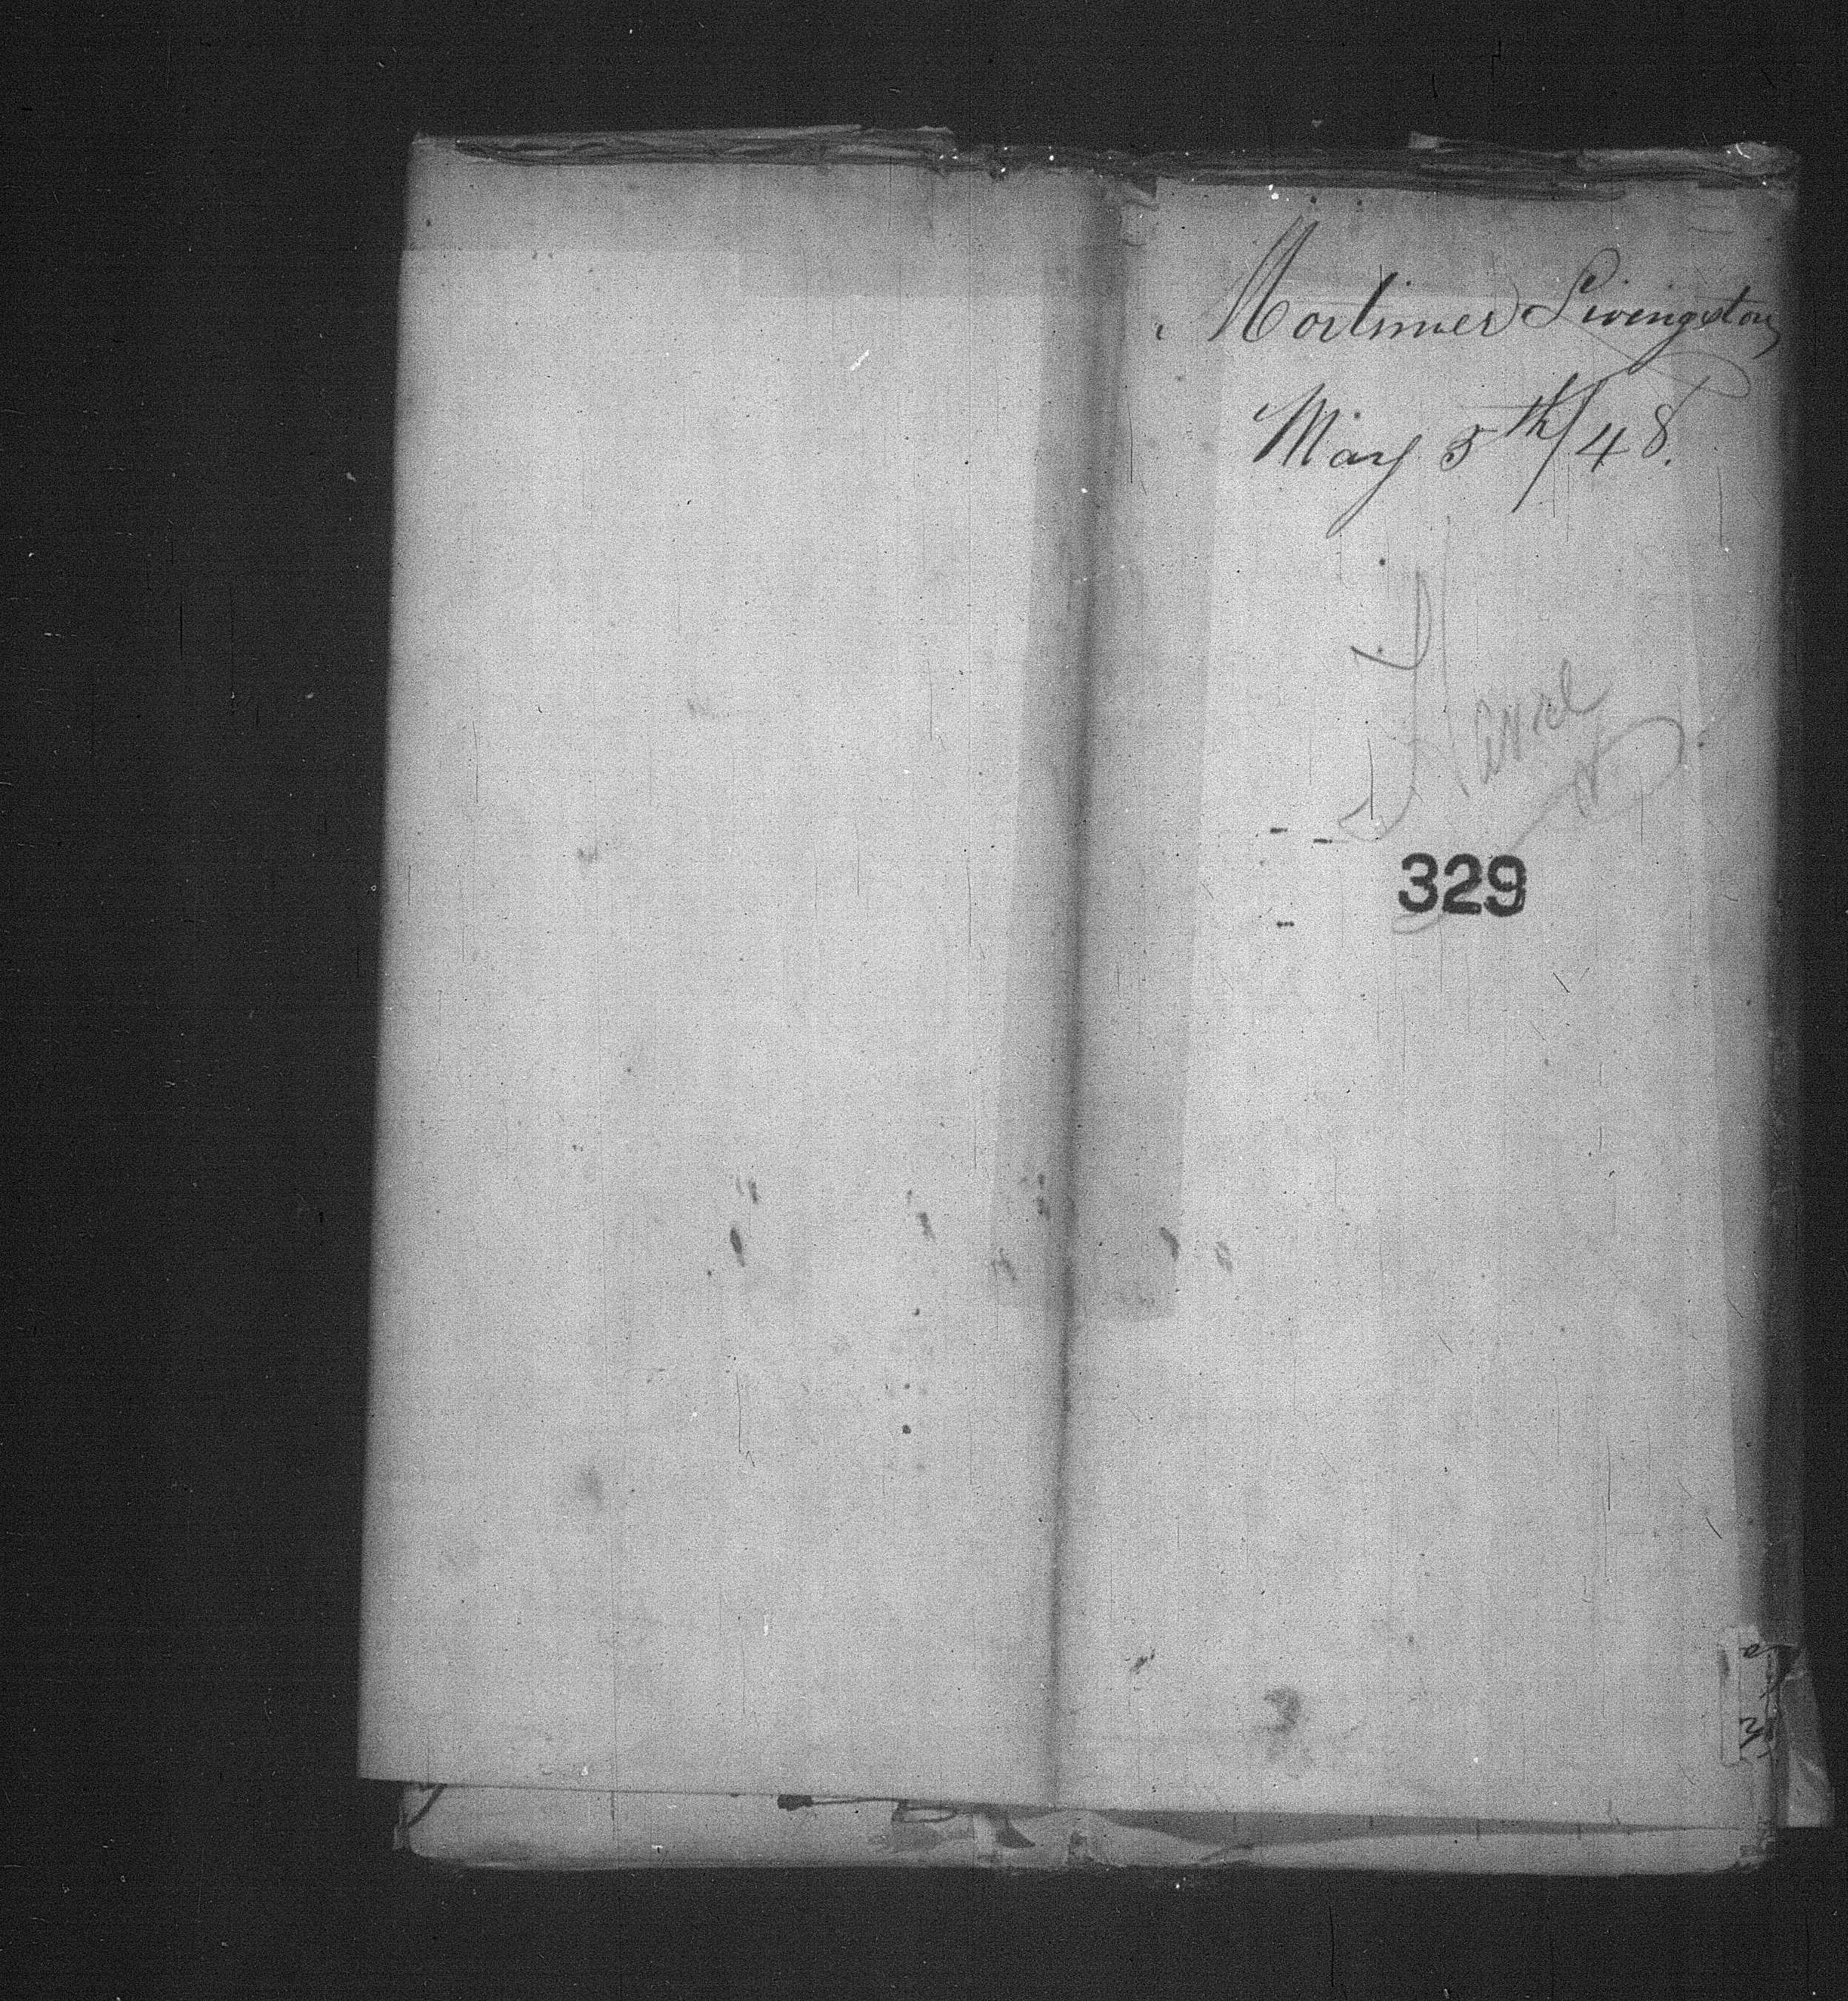 Mortimer Livingston
May 5th/48.
Havre
329